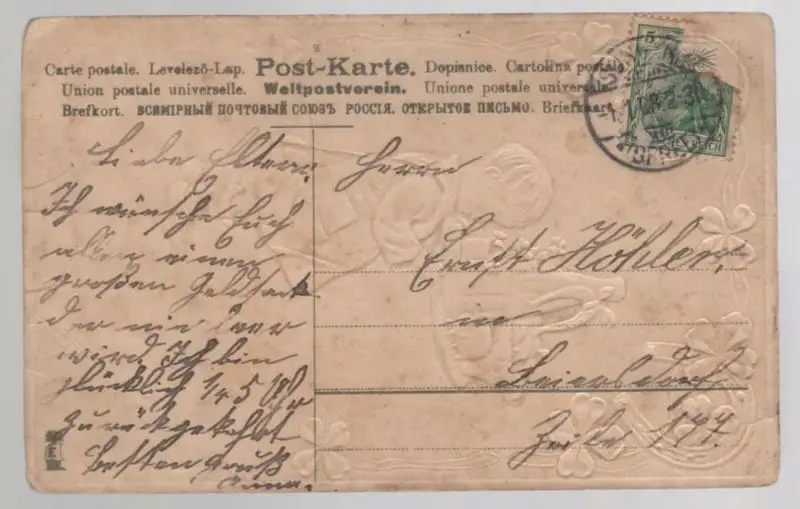 Carte postale. Levelező-Lap. Post-Karte. Dopisnice. Cartolina postale
Union postale universelle. Weltpostverein. Unione postale universale
Brefkort. ВСЕМІРНЫЙ ПОЧТОВЫЙ СОЮЗЪ РОССІЯ. ОТКРЫТОЕ ПИСЬМО. Briefkaart
5
REICH
Liebe Eltern.
Ich wünsche Euch
allen einen
großen Geldsack
der nie leer
wird Ich bin
glücklich 1/4 5 Uhr
zurückgekehrt
besten Gruß
Anna.
Herrn
Ernst Köhler.
in
Beiersdorf
Zeile 177.